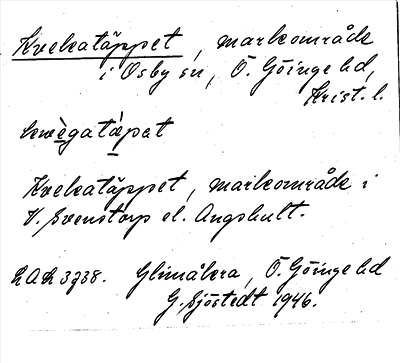 Kvekatäppet, markområde
i Osby sn, Ö. Göinge hd,
Krist. l.
kwègatàpat
Kvekatäppet, markområde i
V. Svenstorp el. Angshult.
LAL 3738. Glimåkra, Ö. Göinge hd
G. Sjöstedt 1946.